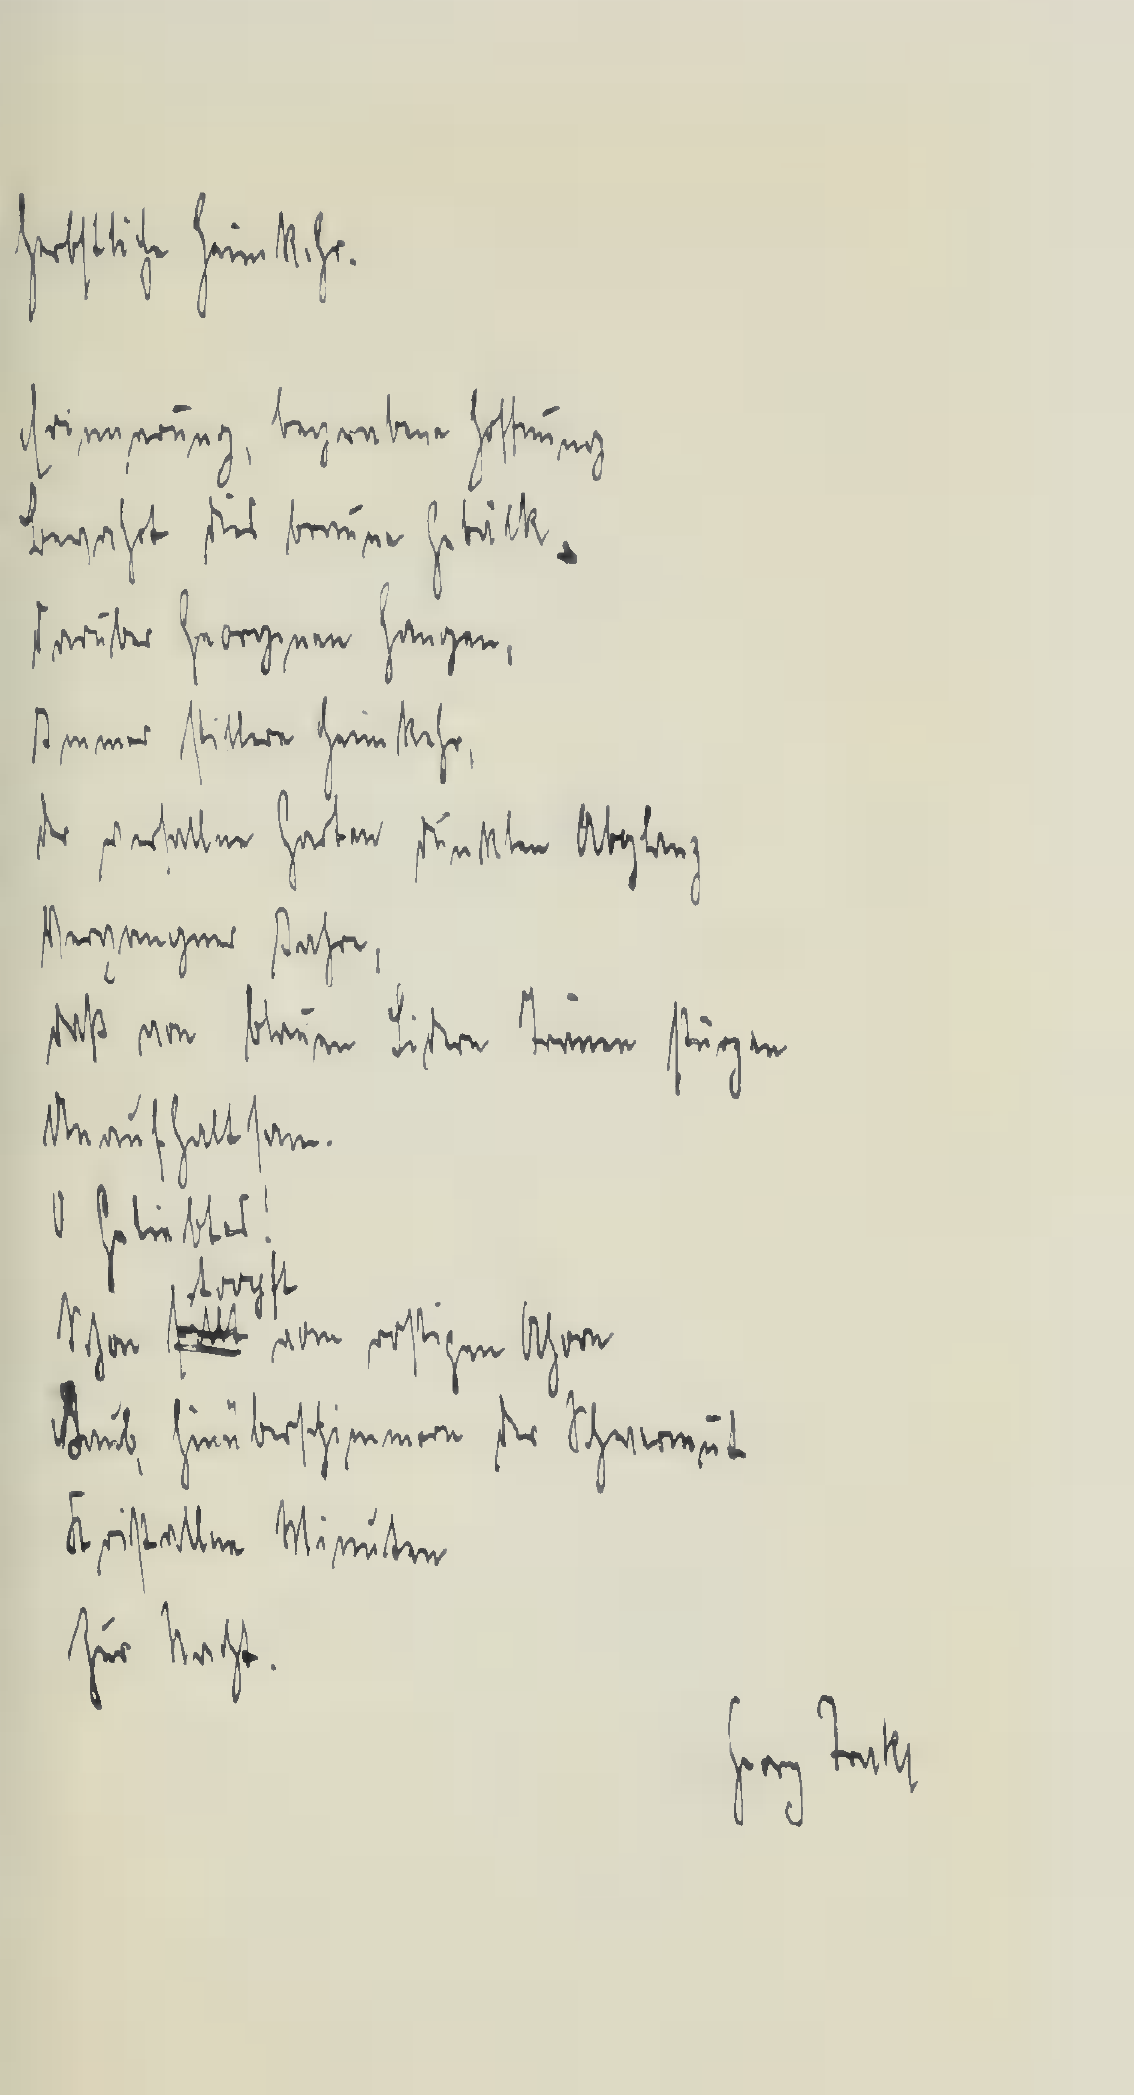 Herbstliche Heimkehr.
Erinnerung, begrabene Hoffnung
Bewahrt dies braune Gebälk
Darüber Georginen hangen,
Immer stillere Heimkehr,
Der verfallne Garten dunklen Abglanz
Vergangner Jahre,
Daß von blauen Lidern Tränen stürzen
Unaufhaltsam.
O Geliebtes!
tropft
Schon vom rostigen Ahorn
Laub, hinüberschimmern der Schwermut
Kristallne Minuten
Zur Nacht.
Georg Trakl